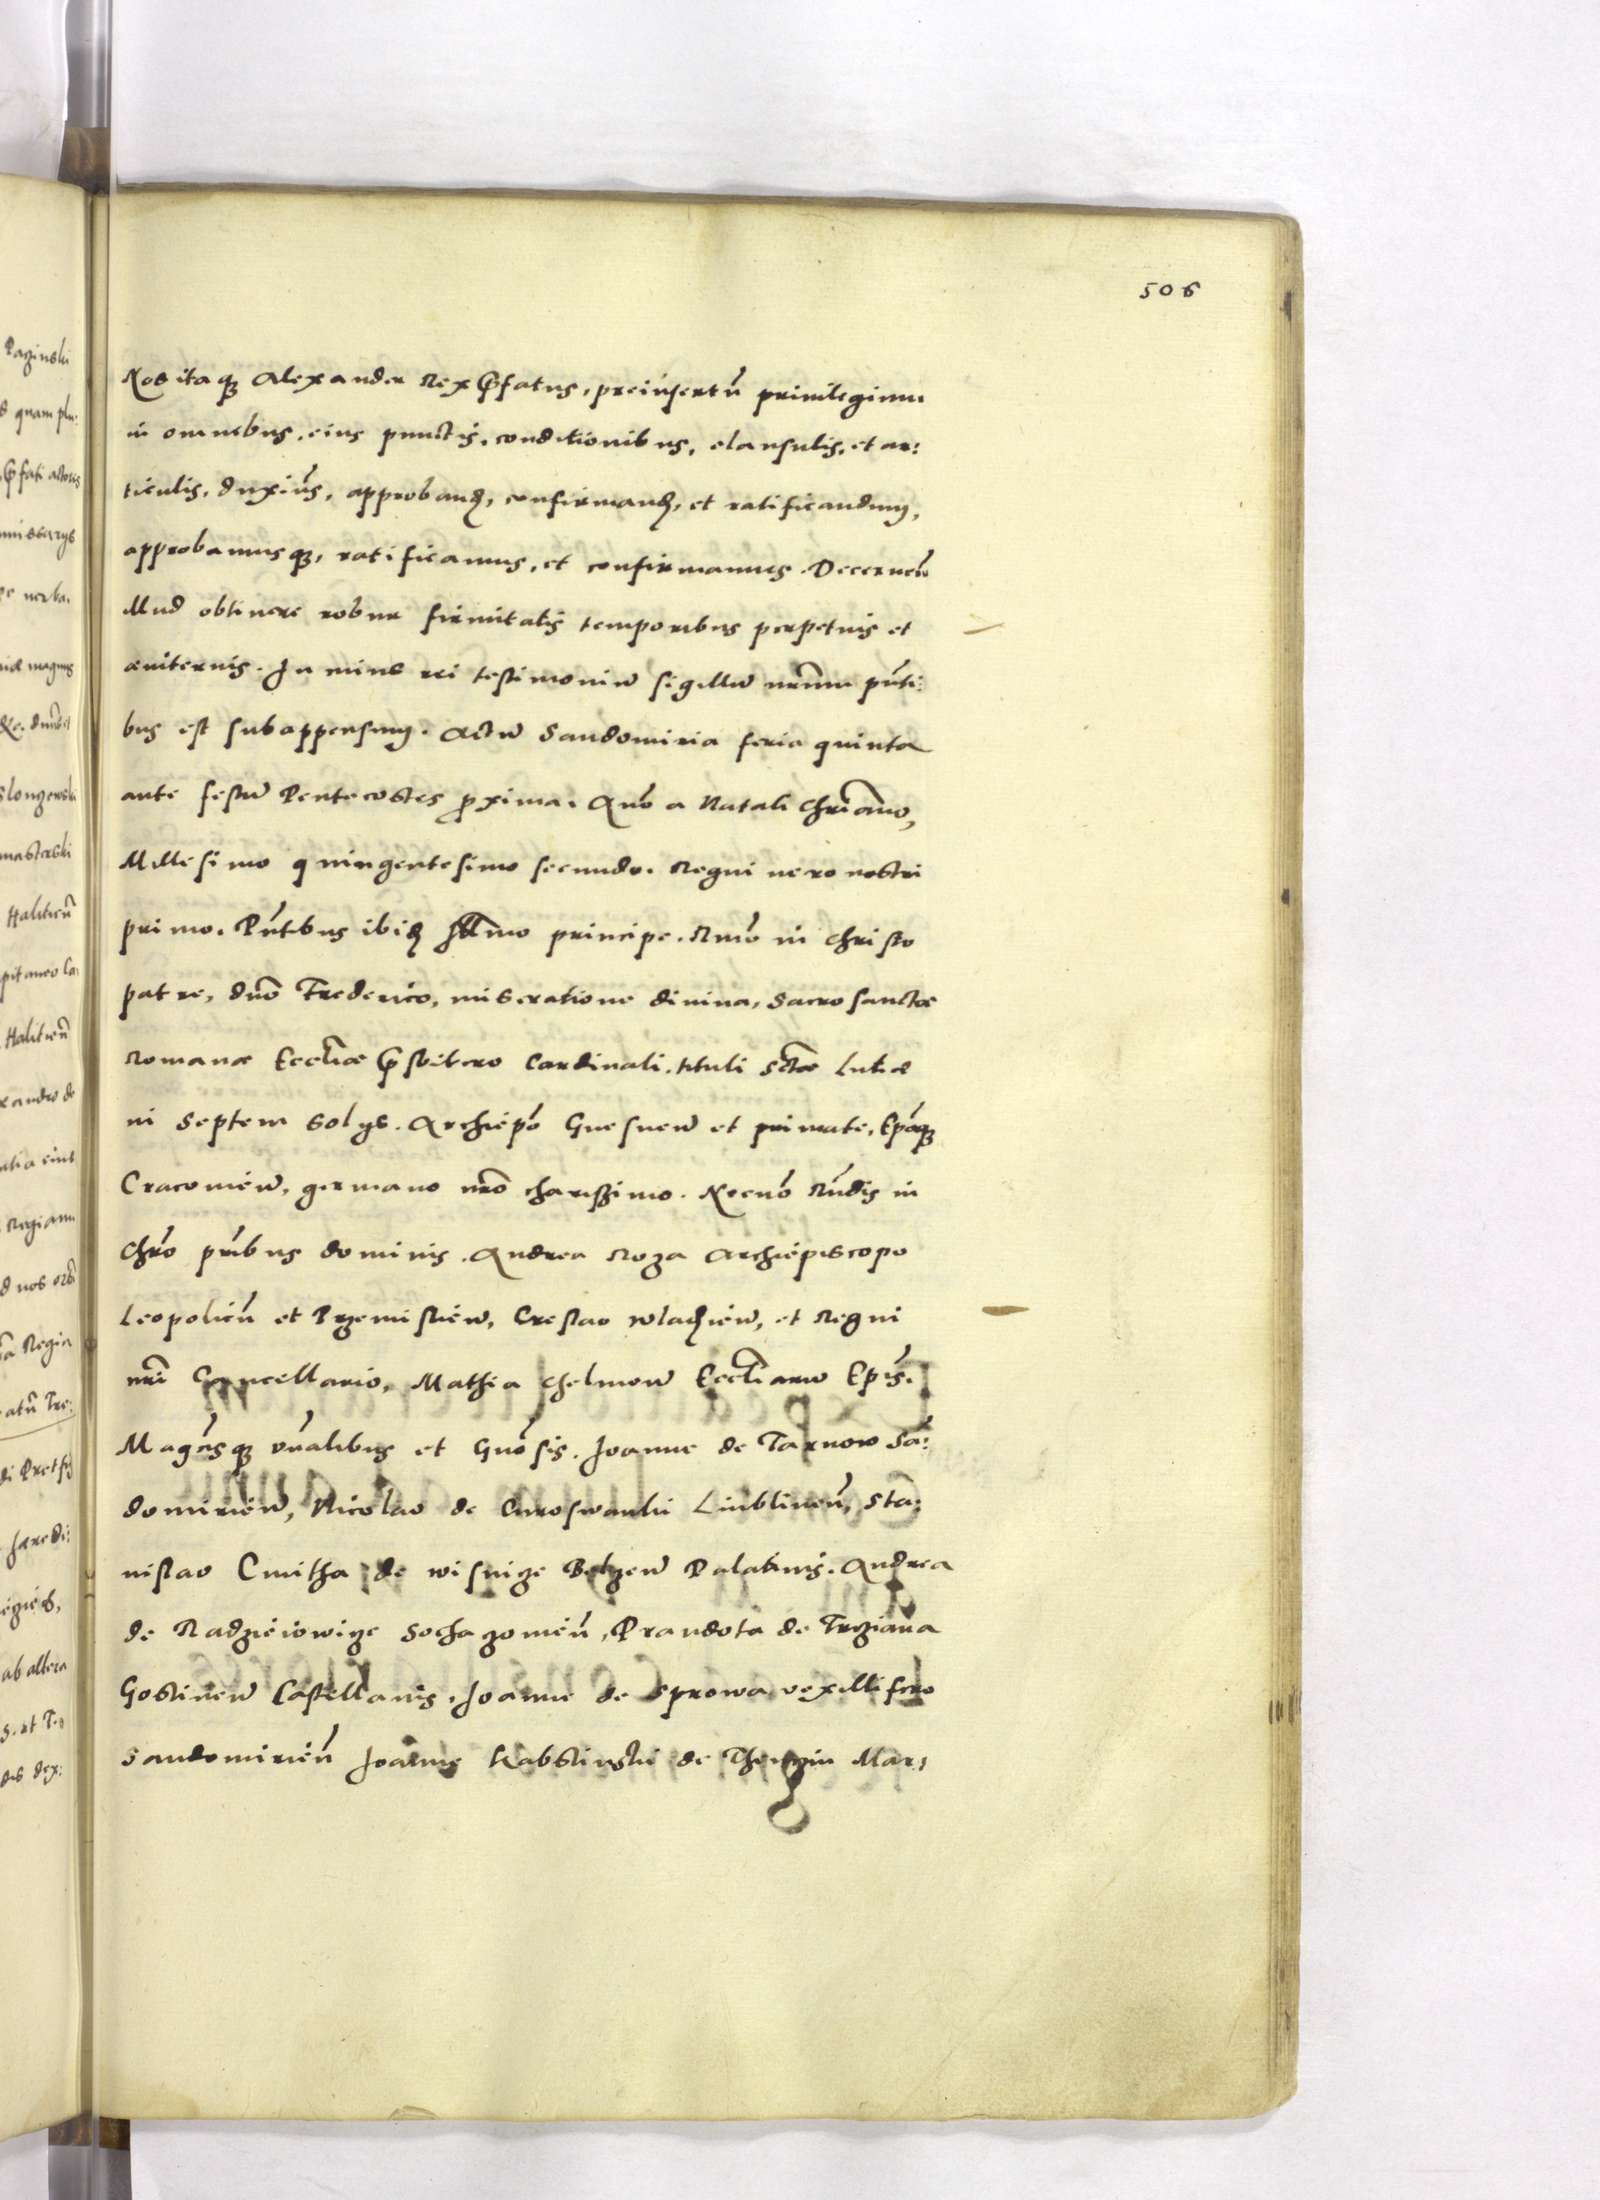 506
Nos itaq₃ Alexander Rex p̄fatus, preinsertū privilegium
in omnibus, eius punctis, conditionibus, clausulis, et ar:
ticulis, duxim̄s, approband, confirmand, et ratificandum,
approbamusq₃, ratificamus, et confirmamus. Decernen̄
illud obtinere robur firmitatis temporibus perpetuis et
æviternis. In cuius rei testimoniū sigillū nr̄um pn̄ti:
bus est subappensum. Actū Sandomiria feria quinta
ante festū Pentecostes proxima. An̄o a Natali chriāno,
Millesimo quingentesimo secundo. Regni vero nostri
primo. Pn̄tibus ibid Ill̄mo principe. Rm̄o in Christo
patre, dn̄o Frederico, miseratione divina, Sacrosanctæ
Romanæ Eccl̄iæ p̄sbitero Cardinali. tituli Sctæ Lutiæ
in Septem Solys. Archiep̄o Gnesnen̄ et primate, Ep̄oq₃
Cracovien̄, germano nr̄o charissimo. Necnō Rn̄dis in
Chr̄o pr̄ibus dominis. Andrea Roza Archiepiscopo
Leopolien̄ et Przemislien̄, Creslao wladien̄, et Regni
nr̄i Cancellario, Mathia Chelmen̄ Eccl̄iarū Ep̄is.
Magcisq₃ vn̄alibus et Gn̄osis. Joanne de Tarnow Sā:
domirien̄, Nicolao de Curoswanki Liublinen̄, Sta:
nislao Cmitha de wisnize Belzen̄ Palatinis. Andrea
de Radzieiowize Sochazovien̄, Prandota de Trziana
Gostinen̄ Castellanis, Joanne de Sprowa vexillifero
Sandomirien̄ Joanne Rabstinski de Thenzin Mar: